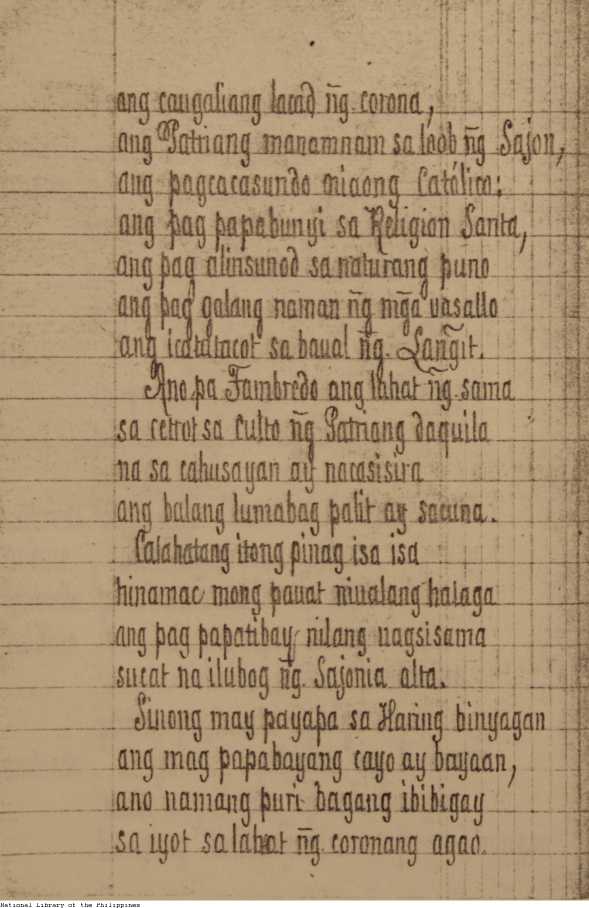 ang caugaliang lacad n͠g corona,
ang Patriang manamnam sa loob n͠g Sajon,
ang pagcacasundo niaong Católico;
ang pag papabunyi sa Religion Santa,
ang pag alinsunod sa naturang puno
ang pag galang naman n͠g m͠ga vasallo
ang icatatacot sa baual n͠g Lan͠git.
Ano pa Fambredo ang lahat n͠g sama
sa cetrot sa Culto n͠g Patriang daquila
na sa cahusayan ay nacasisira
ang balang lumabag palit ay sacuna.
Calahatang itong pinag isa isa
hinamac mong pauat niualang halaga
ang pag papatibay nilang nagsisama
sucat na ilubog n͠g Sajonia alta.
Sinong may payapa sa Haring binyagan
ang mag papabayang cayo ay bayaan,
ano namang puri bagang ibibigay
sa iyot sa lahat n͠g coronang agao.
National Library of the Philippines